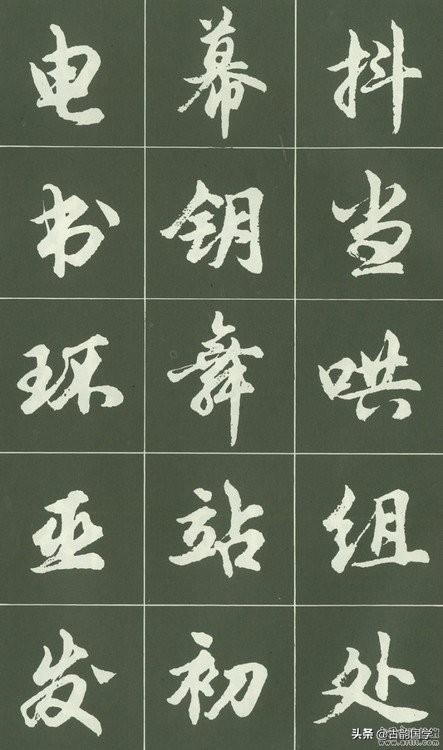 电 幕 抖
书 钥 当
环 舞 哄
亚 站 组
发 初 处
头条 @古韵国学